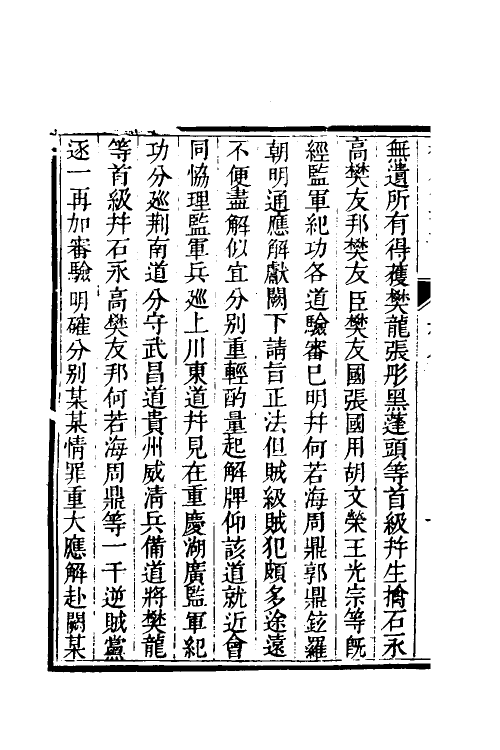 無遺所有得獲樊龍張彤黑蓬頭等首級幷生擒石永
高樊友邦樊友臣樊友國張國用胡文榮王光宗等旣
經監軍紀功各道驗審已明幷何若海周鼎郭鼎鉉羅
朝明通應解獻闕下請旨正法但賊級賊犯頗多途遠
不便盡解似宜分别重輕酌量起解牌仰該道就近會
同恊理監軍兵巡上川東道幷見在重慶湖廣監軍紀
功分廵荆南道分守武昌道貴州威淸兵備道將樊龍
等首級幷石永高樊友邦何若海周鼎等一干逆賊黨
逐一再加審驗明確分别某某情罪重大應解赴闕某